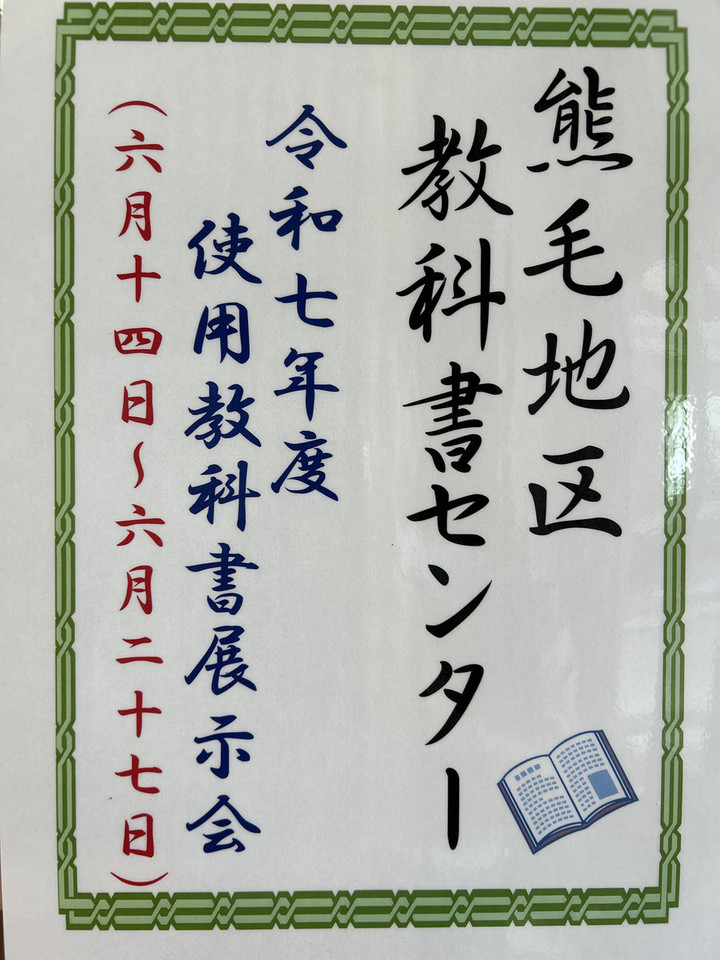 熊毛地区
教科書センター
令和七年度
使用教科書展示会
(六月十四日～六月二十七日)